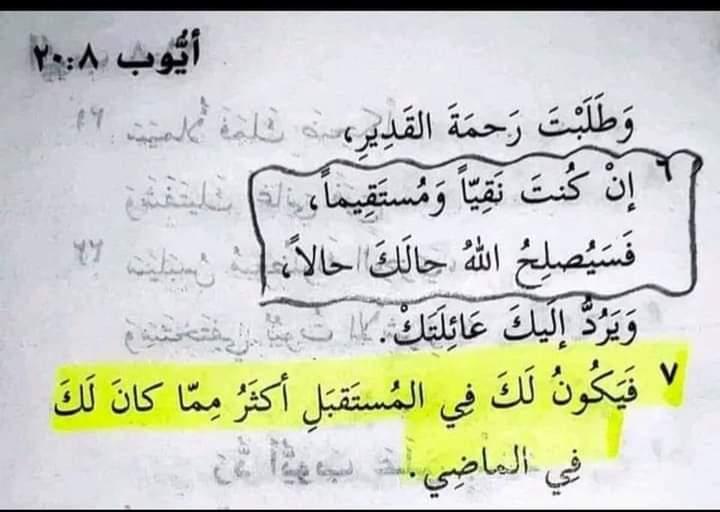 أيُّوب ٢٠:٨
وَطَلَبْتَ رَحمَةَ القَدِيرِ،
٦ إنْ كُنتَ نَقِيّاً وَمُستَقِيماً،
فَسَيُصلِحُ اللهُ حالَكَ حالاً،
وَيَرُدُّ إلَيكَ عَائِلَتَكْ.
٧ فَيَكُونُ لَكَ فِي المُستَقبَلِ أكثَرُ مِمّا كانَ لَكَ
فِي الماضِي.